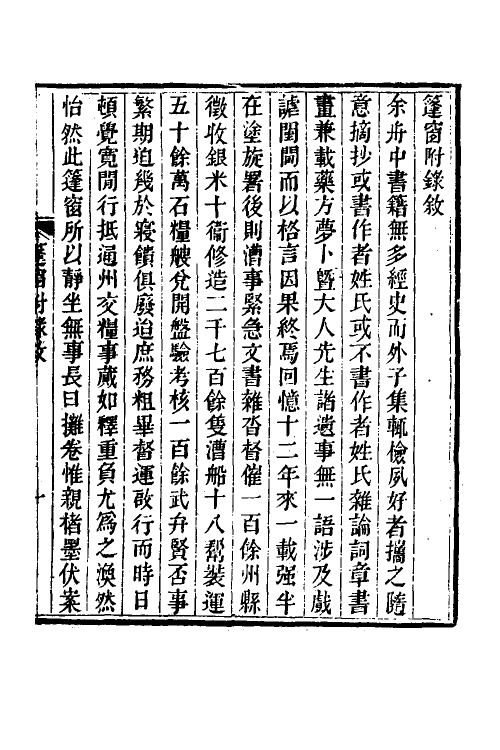 篷窗附錄敘
余舟中書籍無多經史而外子集輒儉夙好者攜之隨
意摘抄或書作者姓氏或不書作者姓氏雜論詞章書
畫兼載藥方夢卜暨大人先生諧遺事無一語涉及戲
謔閨閫而以格言因果終焉回憶十二年來一載强半
在塗旋署後則漕事緊急文書雜沓督催一百餘州縣
徵收銀米十衞修造二千七百餘隻漕船十八幫裝運
五十餘萬石糧艘兌開盤驗考核一百餘武弁賢否事
繁期迫幾於寢饋俱廢迨庶務粗畢督運啟行而時日
頓覺寬閒行抵通州交糧事蕆如釋重負尤爲之渙然
怡然此篷窗所以靜坐無事長日攤卷惟親楮墨伏案
篷窗附錄敘
一